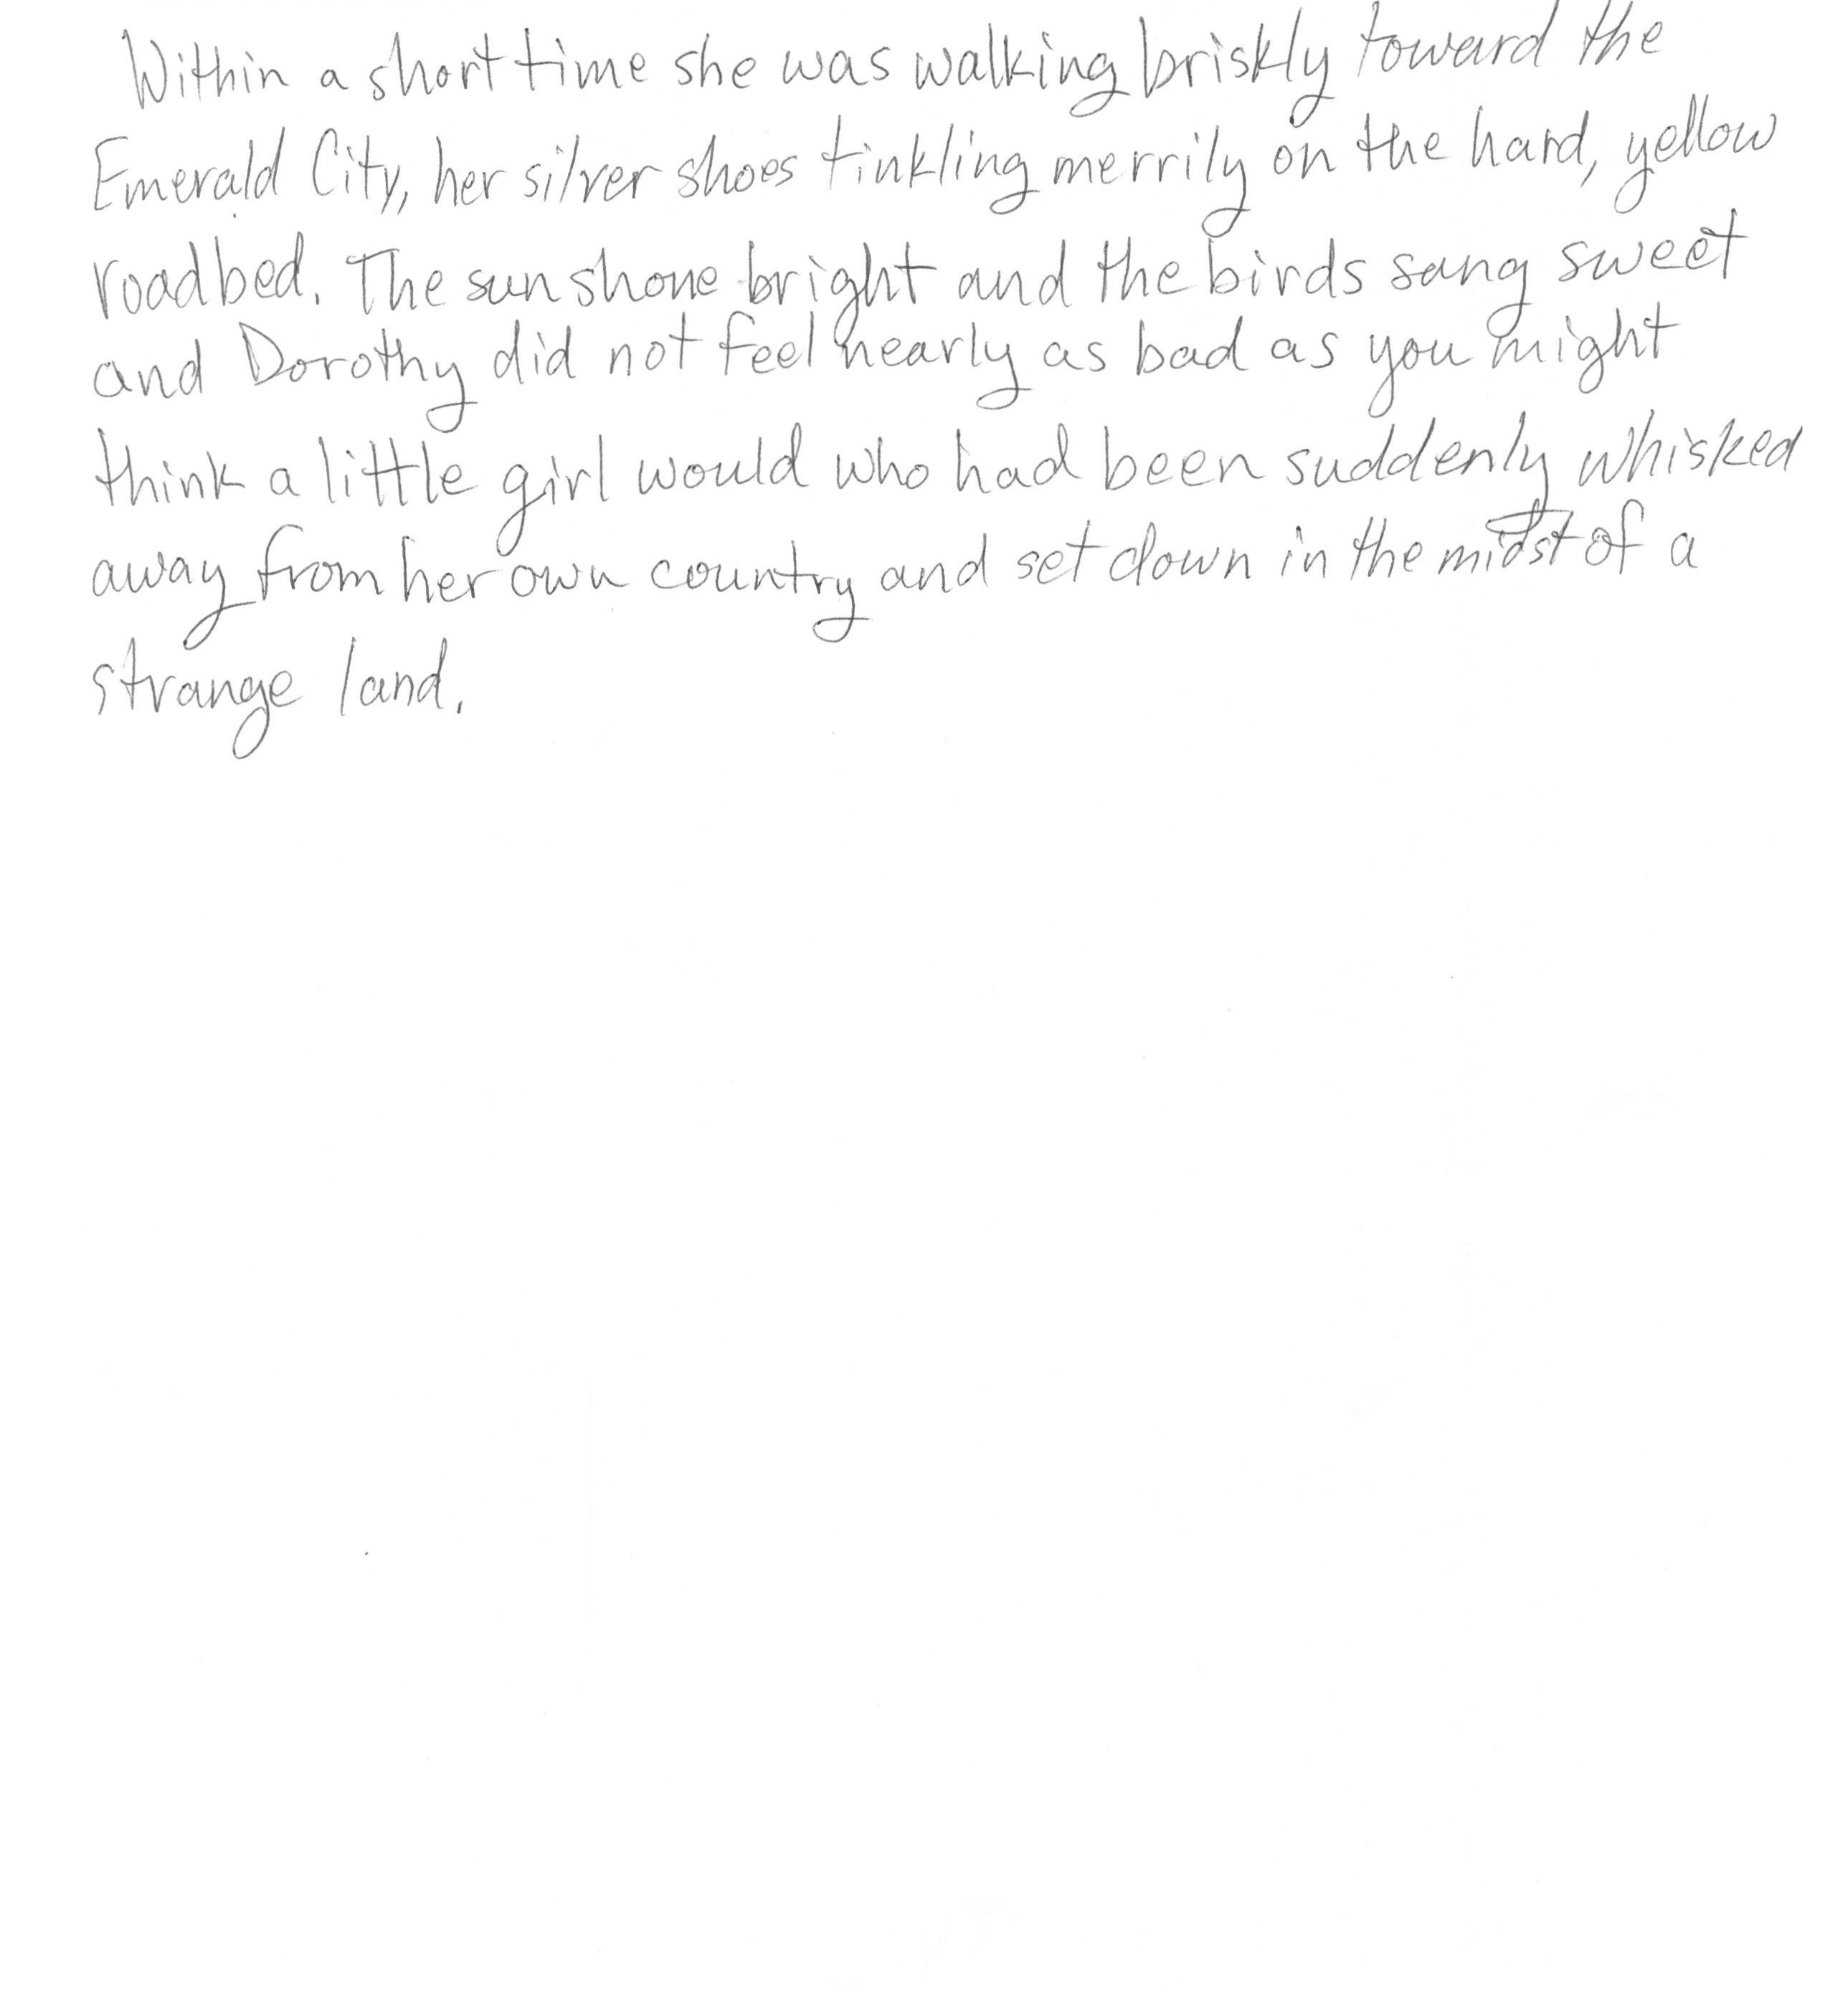 Within a short time she was walking briskly toward the
Emerald City, her silver shoes tinkling merrily on the hard, yellow
roadbed. The sun shone bright and the birds sang sweet
and Dorothy did not feel nearly as bad as you might
think a little girl would who had been suddenly whisked
away from her own country and set down in the midst of a
strange land.